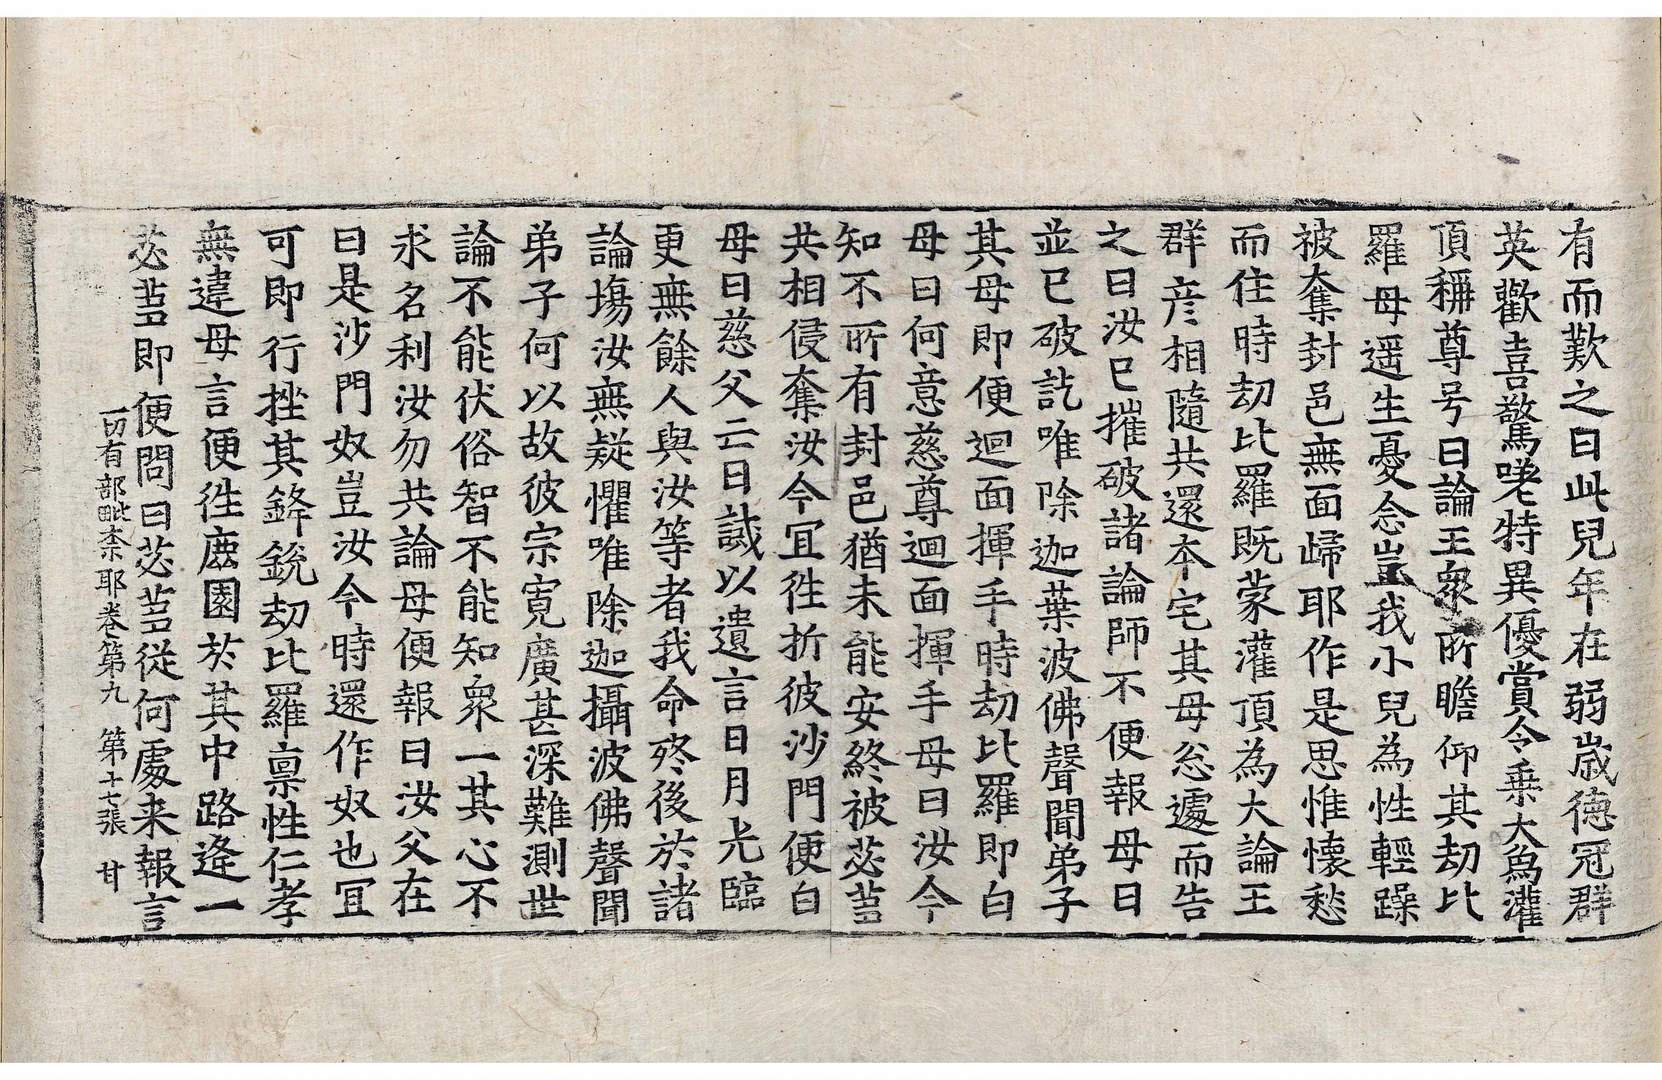 有而歎之曰此兒年在弱歳德冠群
英歡喜驚嗟特異優賞令乗大為灌
頂稱尊号曰論王衆所瞻仰其劫比
羅母遥生憂念豈我小兒為性輕躁
被奪封邑無面歸耶作是思惟懐愁
而住時劫比羅既蒙灌頂為大論王
群彦相隨共還本宅其母忩遽而告
之曰汝已摧破諸論師不便報母曰
並已破訖唯除迦葉波佛聲聞弟子
其母即便迴面揮手時劫比羅即白
母曰何意慈尊迴面揮手母曰汝今
知不所有封邑猶未能安終被苾蒭
共相侵奪汝今宜徃折彼沙門便白
母曰慈父亡日誡以遺言日月光臨
更無餘人與汝等者我命終後於諸
論塲汝無疑懼唯除迦攝波佛聲聞
弟子何以故彼宗寛廣甚深難測世
論不能伏俗智不能知衆一其心不
求名利汝勿共論母便報曰汝父在
日是沙門奴豈汝今時還作奴也宜
可即行挫其鋒銳劫比羅禀性仁孝
無違母言便徃鹿園於其中路逢一
苾蒭即便問曰苾蒭從何處来報言
一切有部毗奈耶卷第九　第十七張　甘